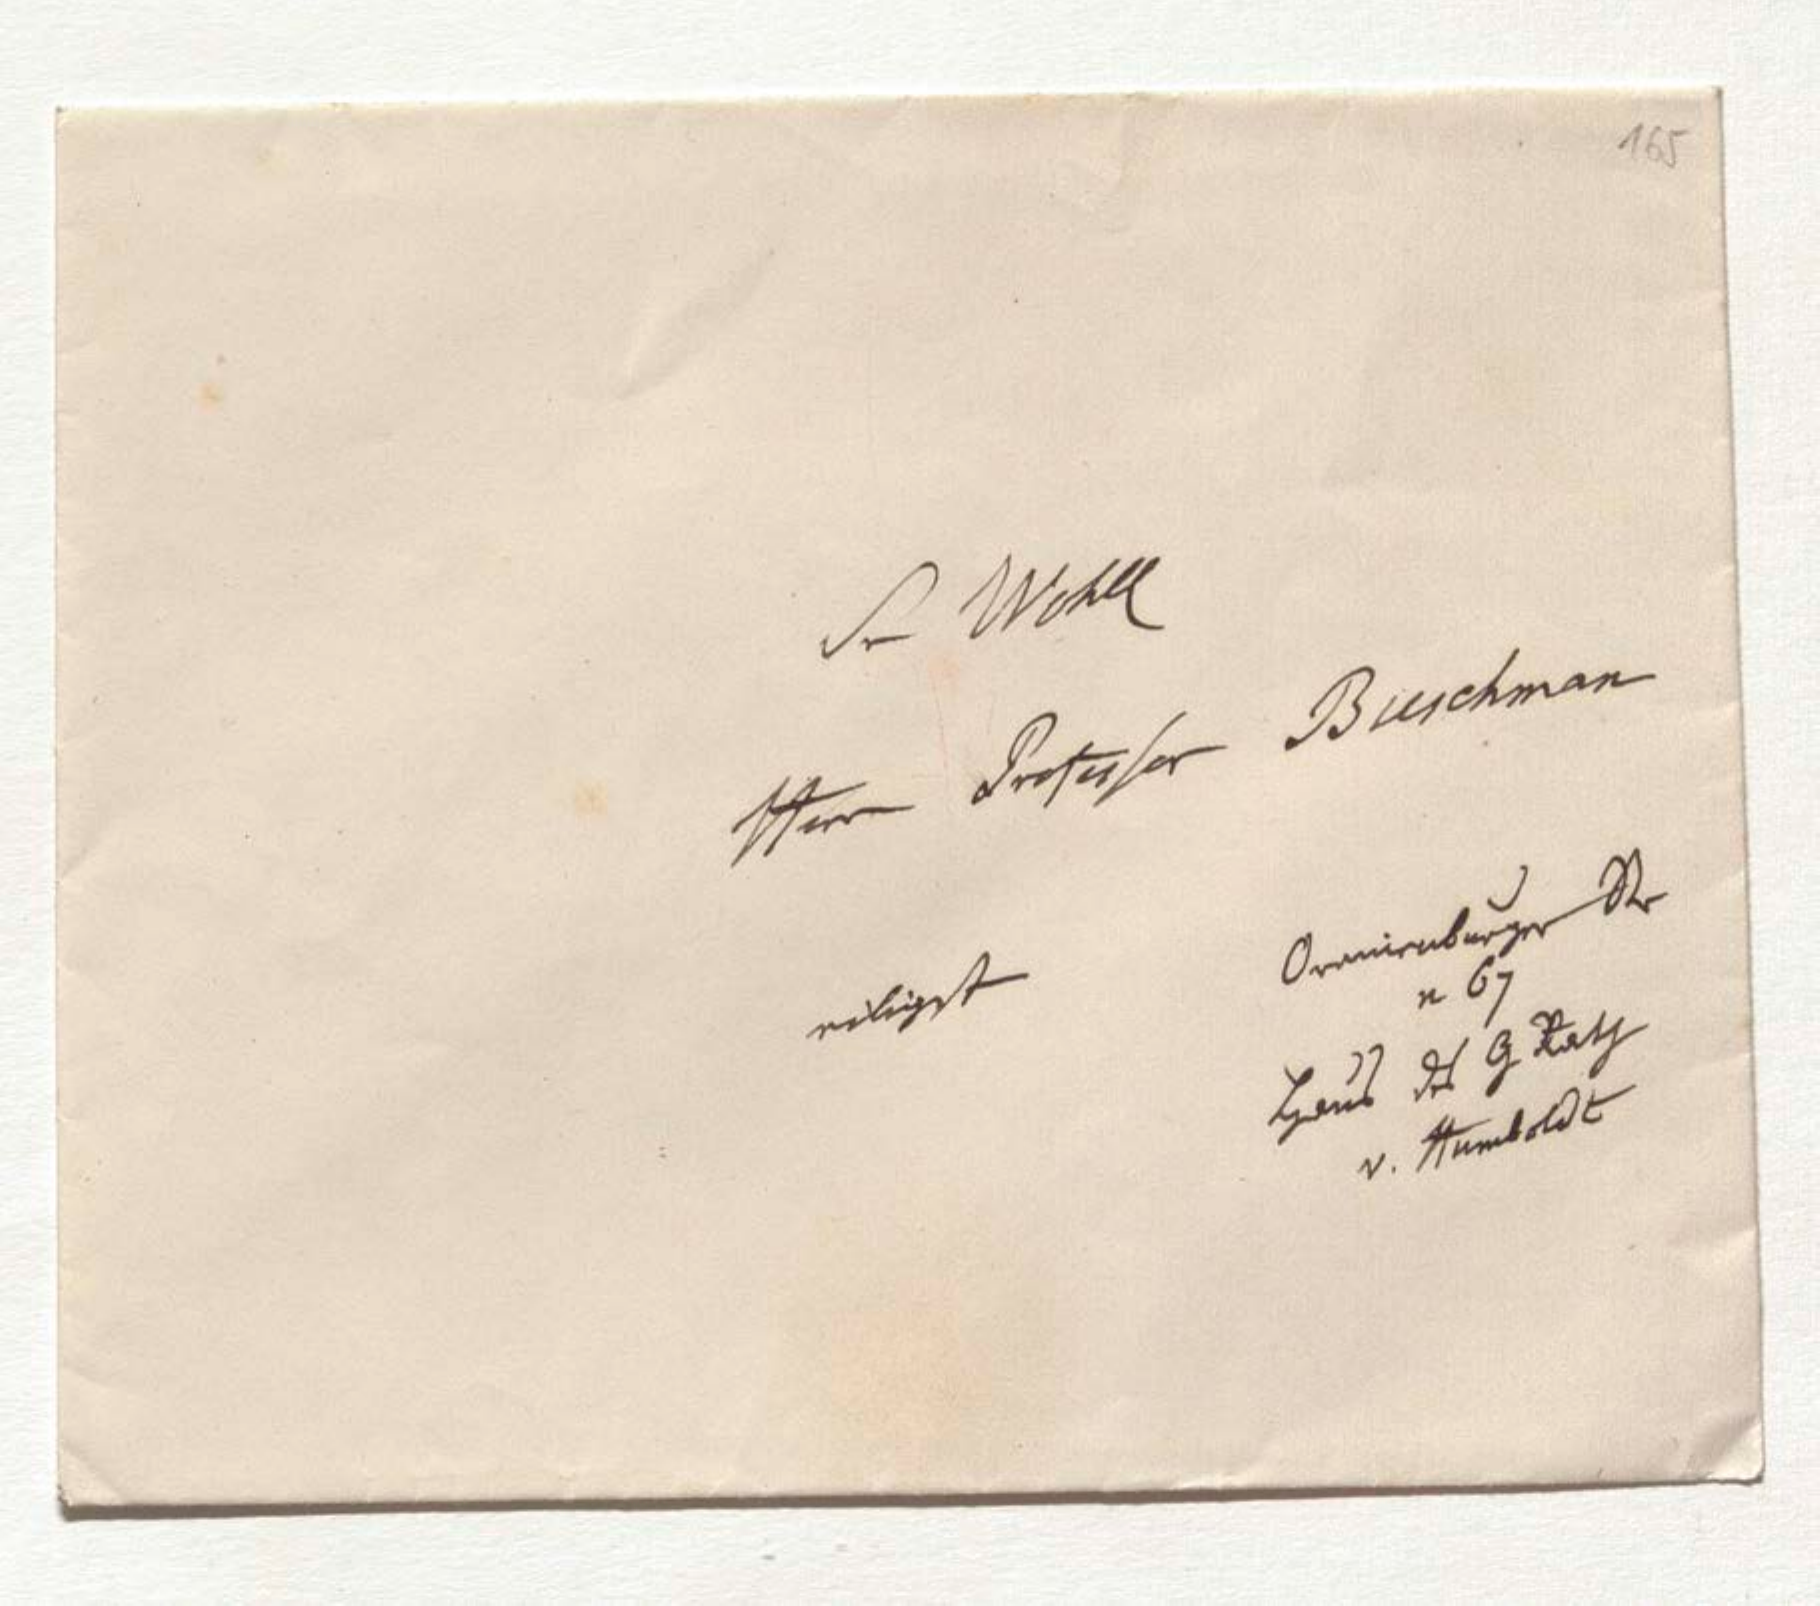 165
Sr Wohll
Herr Professor Buschman
Oranienburger Str
n 67
eiligst
Haus des G Rath
v. Humboldt